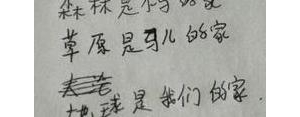 森林是的家
草原是马儿的家
地球是我们的家.